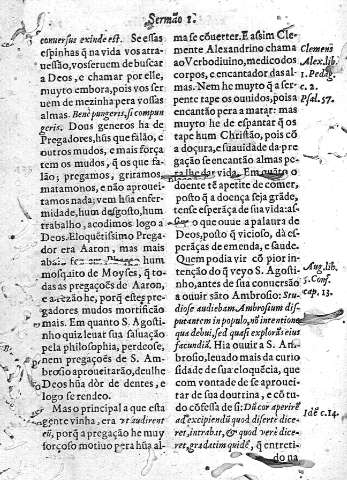 Sermão 1.
conuersus exinde est. Se essas
espinhas q̃ na vida vos atra-
uessão, vos seruem de buscar
a Deos, e chamar por elle,
muyto embora, pois vos ser
uem de mezinha pera vossas
almas. Bene pungeris, si compun
geris. Dous generos ha de
Pregadores, hũs que falão, e
outros mudos, e mais força
tem os mudos, q̃ os que fa-
lão; pregamos, gritamos,
matamonos, e não aprouei-
tamos nada; vem hũa enfer-
midade, hum desgosto, hum
trabalho, acodimos logo a
Deos. Eloquẽtissimo Prega-
dor era Aaron, mas mais
hum
mosquito de Moyses, q̃ to-
das as pregações de Aaron,
e a rezão he, porq̃ estes pre-
gadores mudos mortificão
mais. Em quanto S. Agosti-
nho quiz leuar sua saluação
pela philosophia, perdeose,
nem pregações de S. Am-
brosio aproueitarão, deulhe
Deos hũa dòr de dentes, e
logo se rendeo.
Mas o principal a que esta
gente vinha, era vt audirent
eũ, porq̃ a pregação he muy
forçoso motiuo pera hũa al-
ma se cõuerter. E assim Cle-
mente Alexandrino chama
ao Verbo diuino, medico dos
corpos, e encantador das al-
mas. Nem he muyto q̃ a ser-
pente tape os ouuidos, pois a
encantão pera a matar: mas
muyto he de espantar q̃ os
tape hum Christão, pois cõ
a doçura, e suauidade da pre-
gação se encantão almas pe-
ra lhe dar vida. Em quãto o
doente tẽ apetite de comer,
posto q̃ a doença seja grãde,
tense esperãça de sua vida: as-
si o que ouue a palaura de
Deos, posto q̃ vicioso, dá es-
perãças de emenda, e saude.
Quem podia vir cõ pior in-
tenção do q̃ veyo S. Agosti-
nho, antes de sua conuersão
a ouuir sãto Ambrosio: Stu-
diose audiebam Ambrosium dis-
putantem in populo, nõ intentione
qua debui, sed quasi explorãs eius
facundiã. Hia ouuir a S. Am-
brosio, leuado mais da curio-
sidade de sua eloquẽcia, que
com vontade de se aprouei-
tar de sua doutrina, e cõ tu-
do cõfessa de si: Dũ cor aperirẽ
ad excipiendũ quod disertè dice-
ret, intrabat, & quod verè dice-
ret, gradatim quidẽ, q̃ entreti-
do na
Clemens
Alex. lib.
1. Pedag.
c. 2.
Psal. 57.
Aug. lib.
5. Conf.
cap. 13.
Idẽ c. 14.